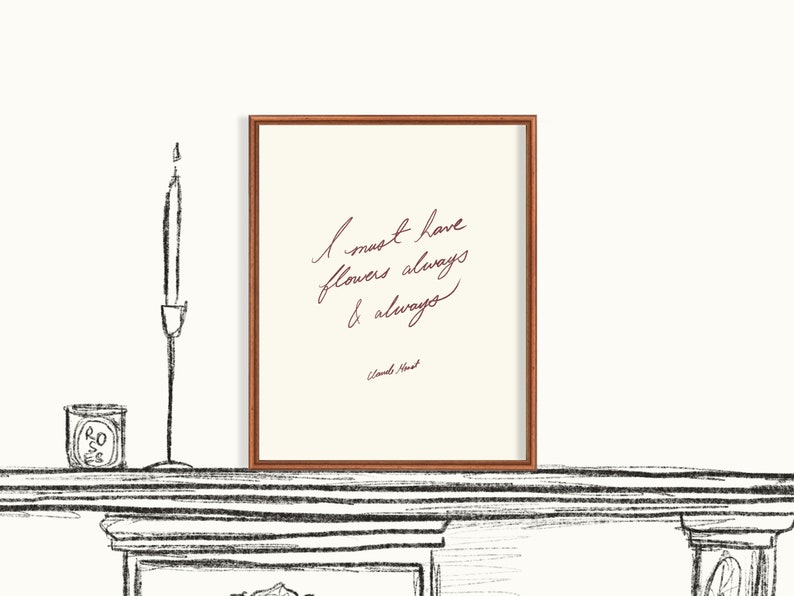 I must have
flowers always
& always
Claude Monet
RO
S
ES